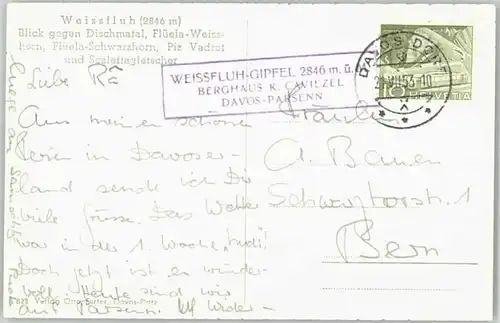 Weissfluh (2846 m)
Blick gegen Dischmatal, Flüela-Weiss-
horn, Flüela-Schwarzhorn, Piz Vadret
und Scalettagletscher
WEISSFLUH-GIPFEL 2846 m. ü.
BERGHAUS K.
DAVOS-PARSENN
DAVOS DORF
53-10
HELVETIA
Liebe
Aus meinen schönen
Ferien in Davoser-
land sende ich Dir
viele Grüsse. Das Wetter
war in der 1. Woche
Doch jetzt ist es wunder-
voll. Heute sind wir
auf Parsenn. wieder-
Fräulein
A.
1
Bern
Verlag Davos-Platz